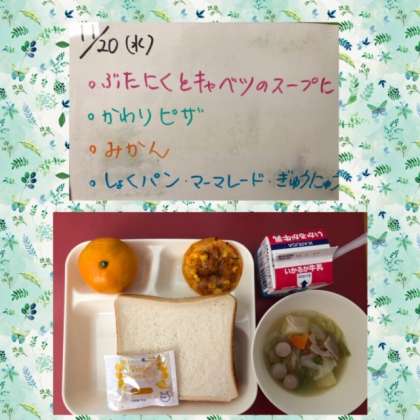 11/20(水)
ぶたにくとキャベツのスープに
かわりピザ
みかん
しょくパン・マーマレード・ぎゅうにゅう
いかるが牛乳
いかるが牛乳